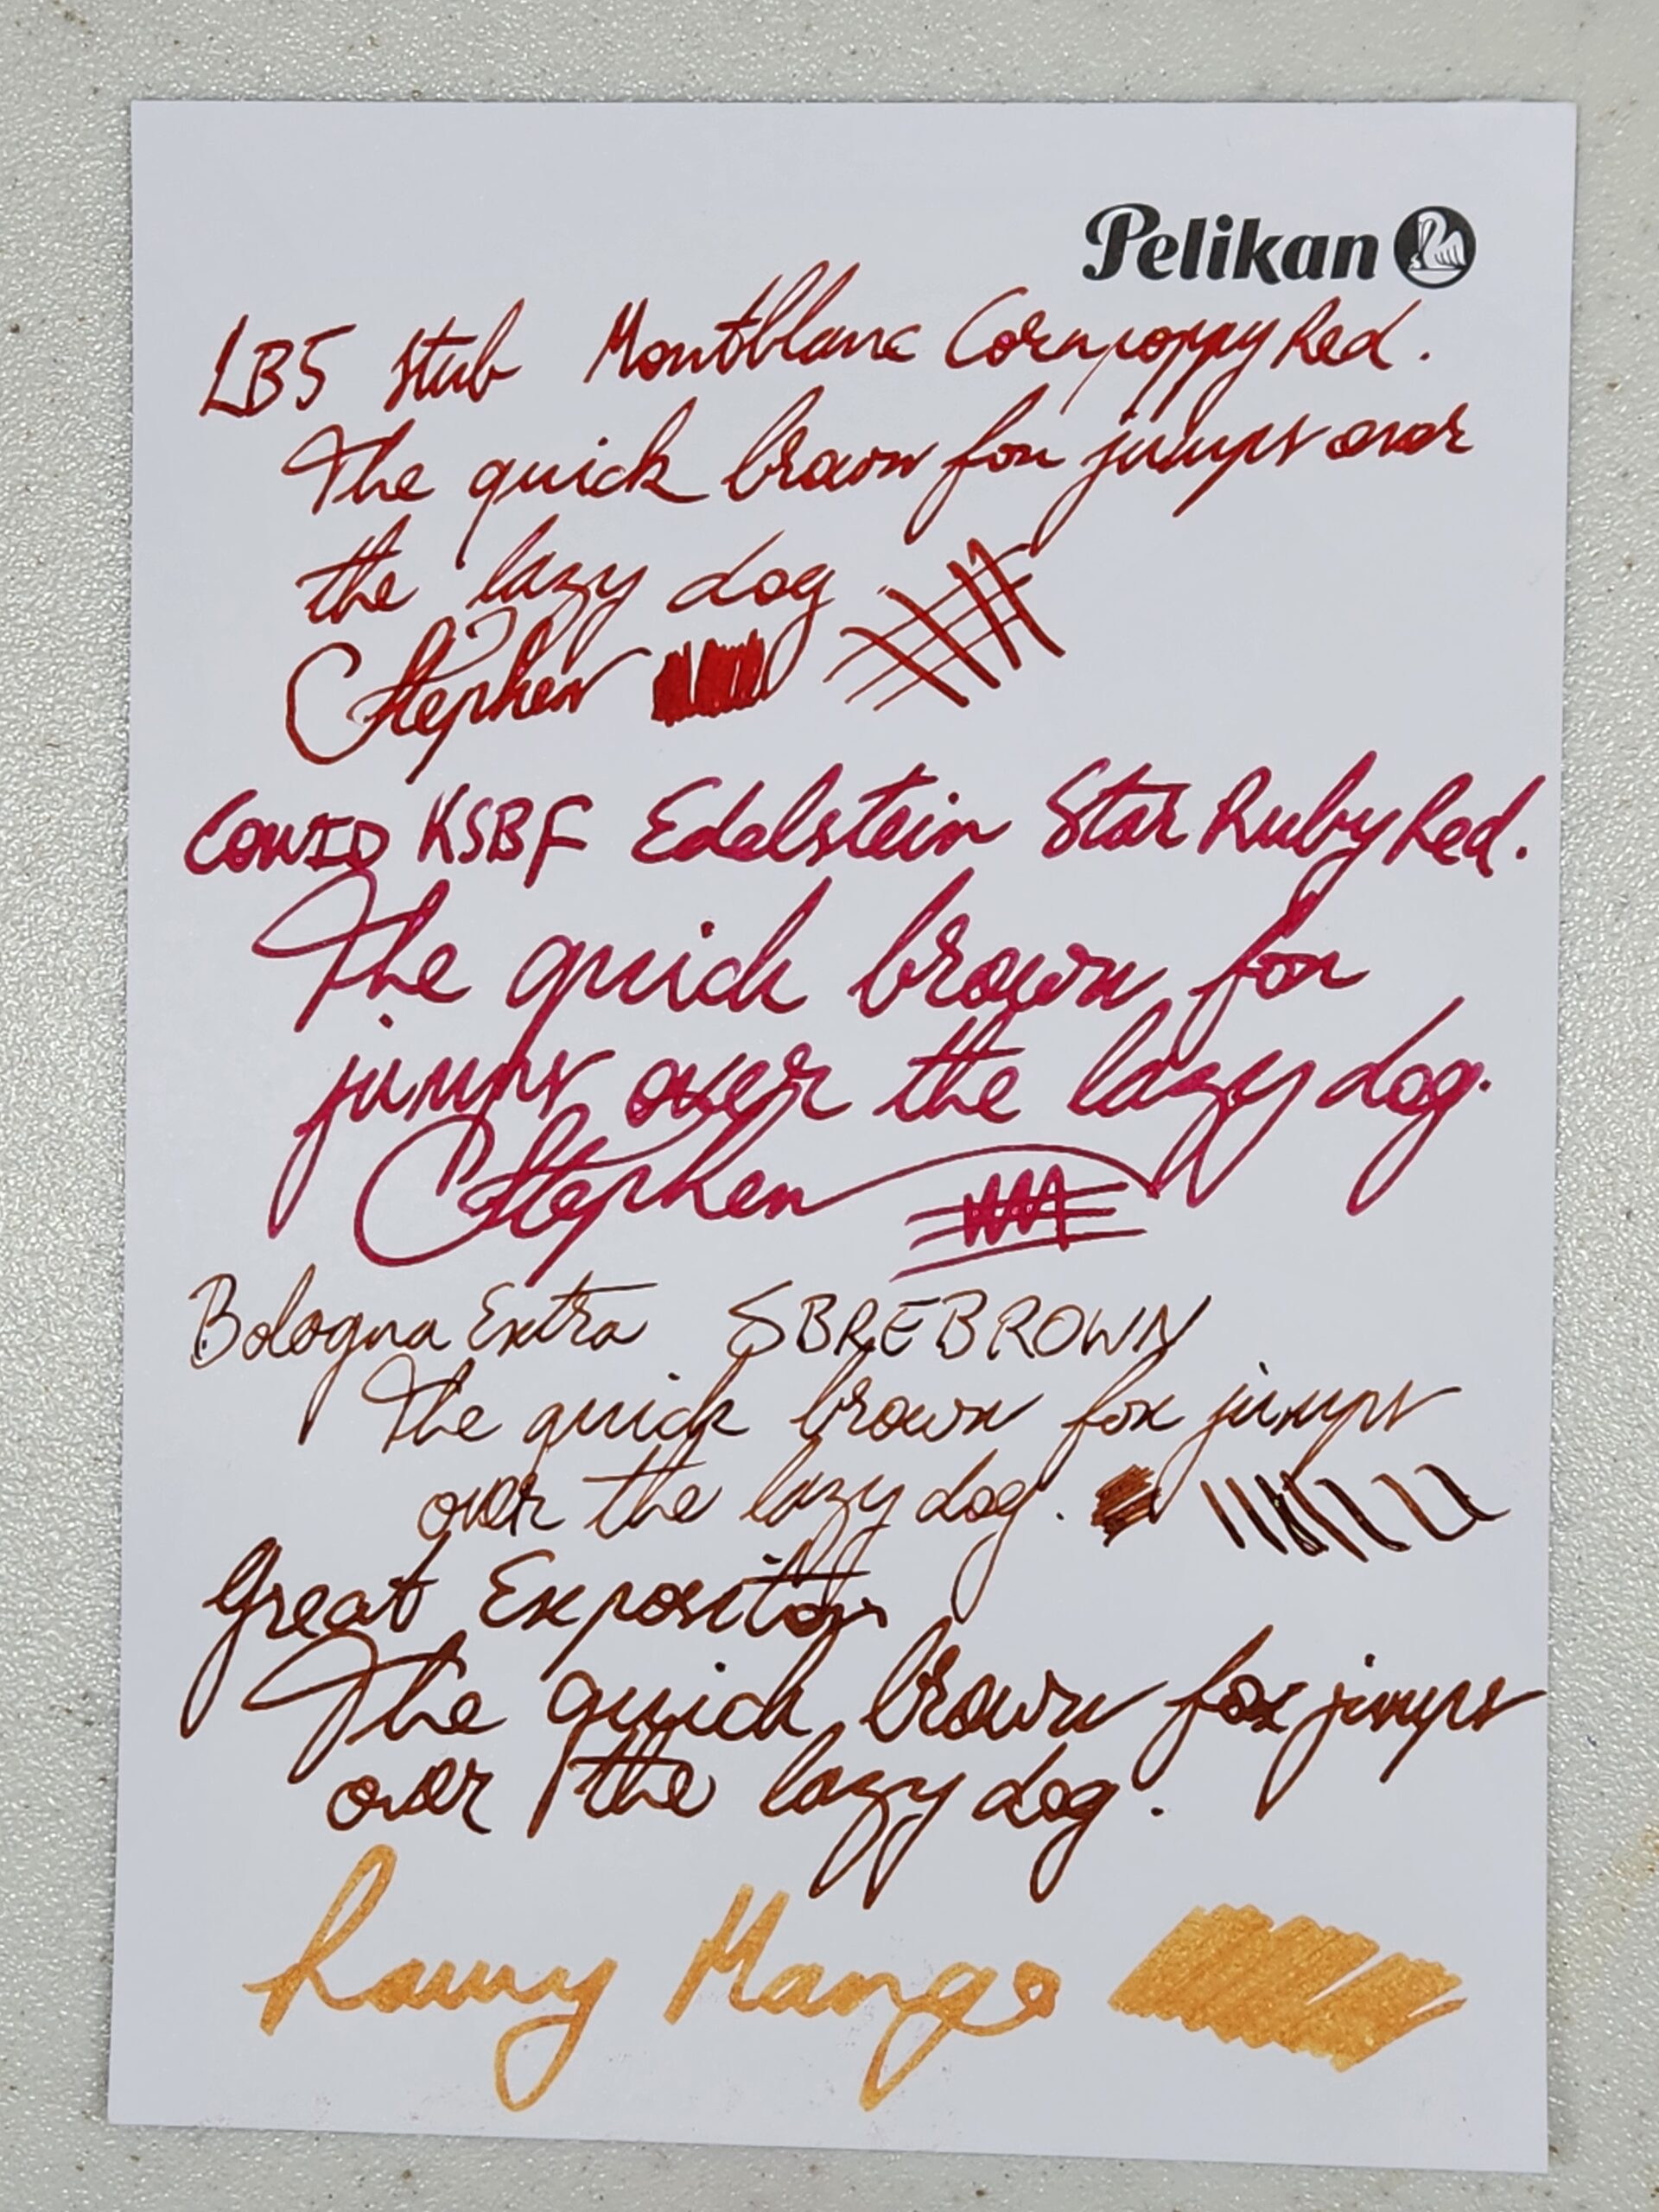 Pelikan
LB5 Stub Montblanc Cornpoppy Red.
The quick brown fox jumps over
the lazy dog
Stephen
COVID KSBF Edelstein Star Ruby Red.
The quick brown fox
jumps over the lazy dog.
Stephen
Bologna Extra SBREBROWN
The quick brown fox jumps
over the lazy dog.
Great Expositon
The quick brown fox jumps
over the lazy dog.
Mango